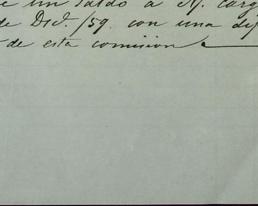 e un saldo a N. carg
de Dic. /59. con una dif
de esta comision